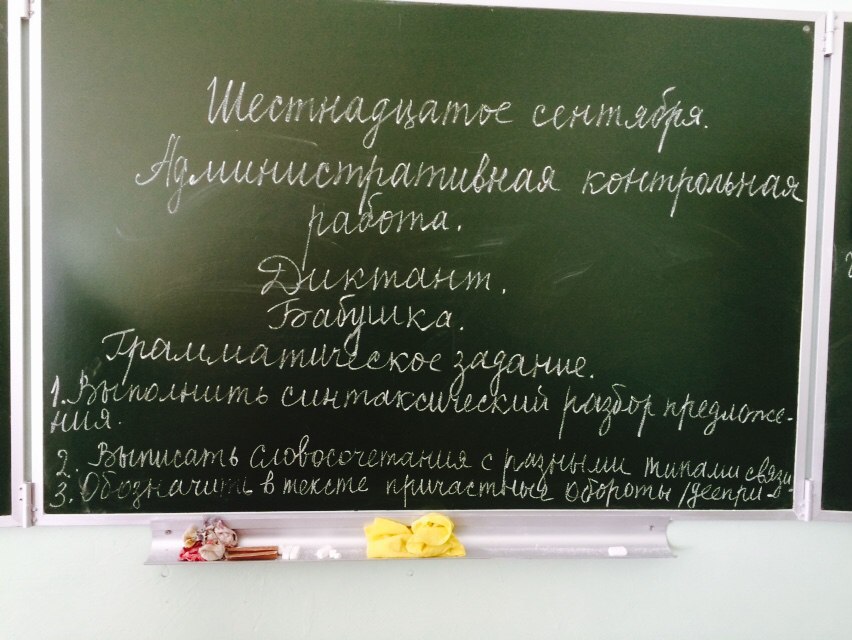 Шестнадцатое сентября.
Административная контрольная
работа.
Диктант.
Бабушка.
Грамматическое задание.
1. Выполнить синтаксический разбор предложе-
ния.
2. Выписать словосочетания с разными типами связи
3. Обозначить в тексте причастные обороты /дееприч-